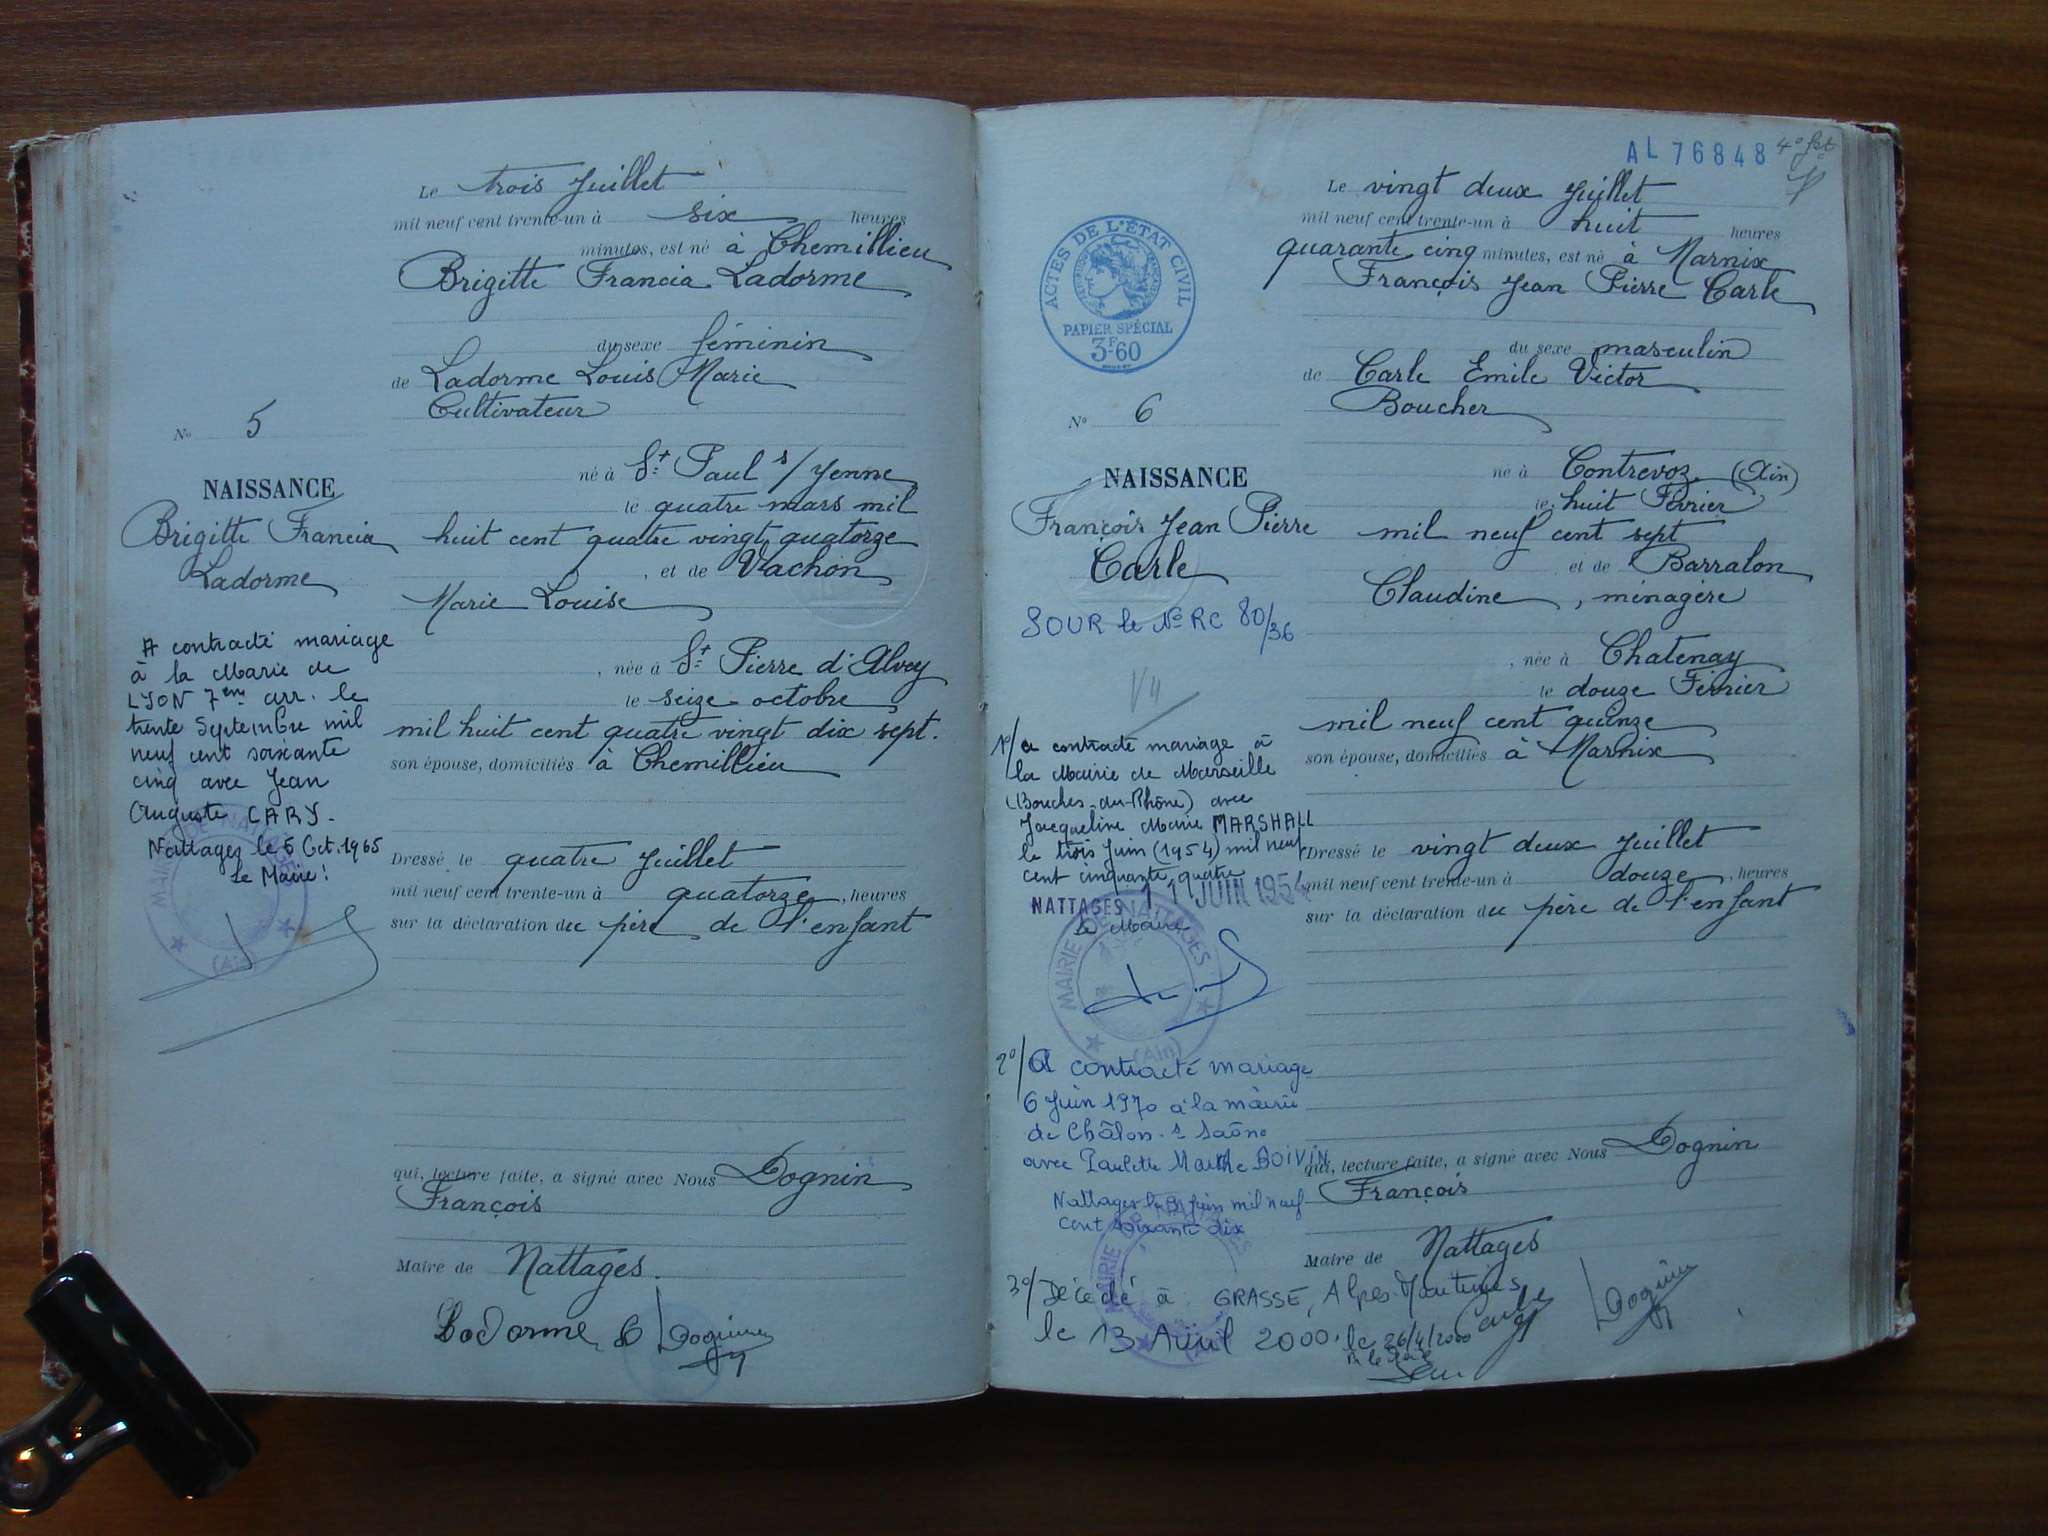 Le trois Juillet
mil neuf cent trente-un à six heures
minutes, est né à Chemillieu
Brigitte Francia Ladorme
du sexe féminin
de Ladorme Louis Marie
Cultivateur
né à St Paul s/Yenne
le quatre mars mil
huit cent quatre vingt quatorze
, et de Vachon
Marie Louise
, née à St Pierre d'Alvey
le seize octobre
mil huit cent quatre vingt dix sept.
son épouse, domiciliés à Chemillieu
Dressé le quatre Juillet
mil neuf cent trente-un à quatorze, heures
sur la déclaration du père de l'enfant
qui, lecture faite, a signé avec Nous Dognin
François
Maire de Nattages.
Ladorme Dognin
No 5
NAISSANCE
Brigitte Francia
Ladorme
A contracté mariage
à la Marie de
LYON 7ème arr. le
trente Septembre mil
neuf cent soixante
cinq avec Jean
Auguste CARY.
Nattages le 6 Oct. 1965
Le Maire:
MAIRIE DE NATTAGES
(Ain)
AL 76848
Le vingt deux Juillet
mil neuf cent trente-un à huit heures
quarante cinq minutes, est né à Marnix
François Jean Pierre Carle
du sexe masculin
de Carle Emile Victor
Boucher
né à Contrevoz (Ain)
le huit Février
mil neuf cent sept
et de Barralon
Claudine, ménagère
, née à Chatenay
le douze Février
mil neuf cent quinze
son épouse, domiciliés à Marnix
Dressé le vingt deux Juillet
mil neuf cent trente-un à douze, heures
sur la déclaration du père de l'enfant
qui, lecture faite, a signé avec Nous Dognin
François
Maire de Nattages
Carle Dognin
ACTES DE L'ÉTAT CIVIL
PAPIER SPÉCIAL
3F60
No 6
NAISSANCE
François Jean Pierre
Carle
SOUR le No RC 80/36
1o/ a contracté mariage à
la Mairie de Marseille
(Bouches-du-Rhône) avec
Jacqueline Marie MARSHALL
le trois Juin (1954) mil neuf
cent cinquante quatre
NATTAGES 11 JUIN 1954
Le Maire
MAIRIE DE NATTAGES
(Ain)
2o/ A contracté mariage
6 Juin 1970 à la mairie
de Châlon-s-Saône
avec Paulette Marthe BOIVIN
Nattages le Juin mil neuf
cent soixante dix
3o/ Décédé à GRASSE, Alpes-Maritimes
le 13 Avril 2000. le 26/4/2000